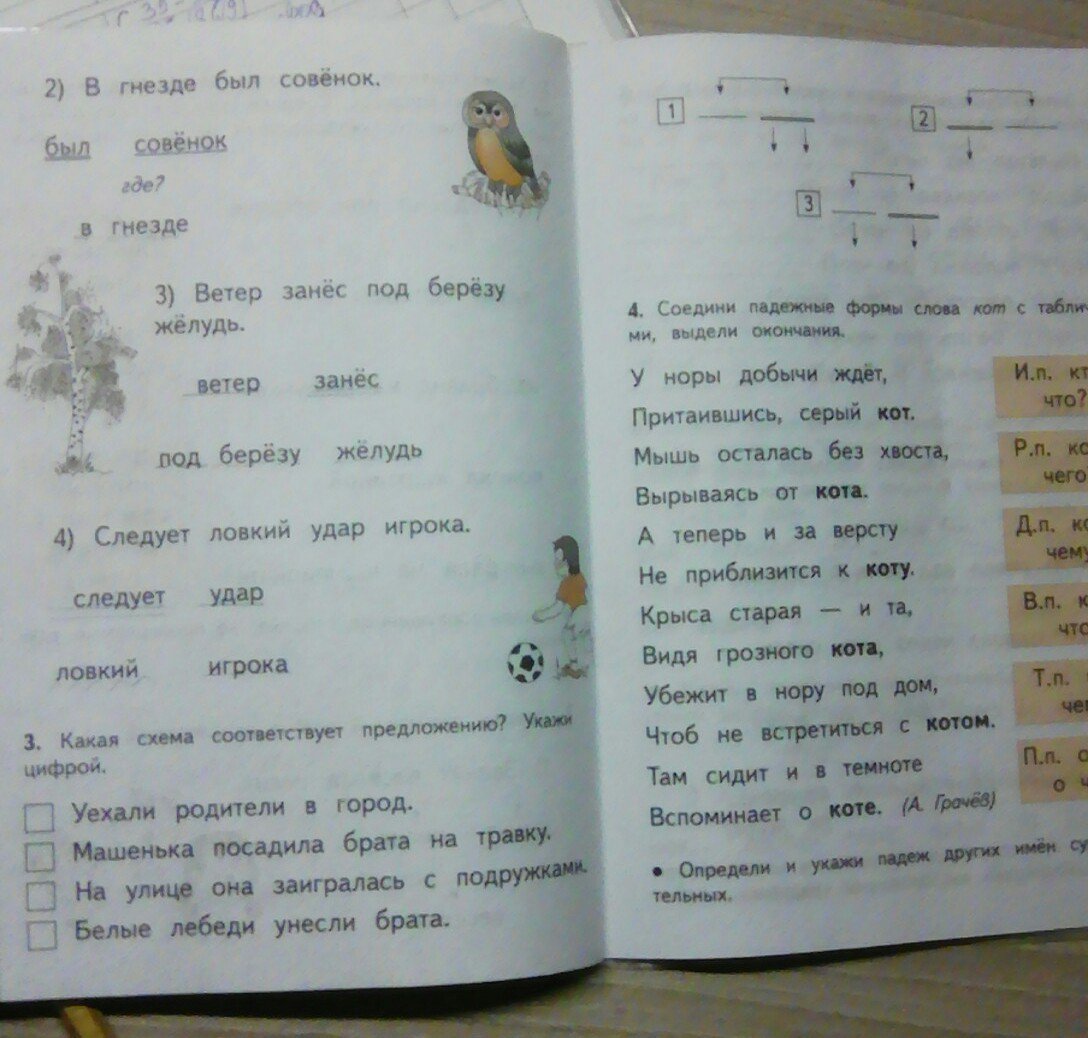 2) В гнезде был совёнок.
был совёнок
где?
в гнезде
3) Ветер занёс под берёзу
жёлудь.
ветер занёс
под берёзу жёлудь
4) Следует ловкий удар игрока.
следует удар
ловкий игрока
3. Какая схема соответствует предложению? Укажи
цифрой.
Уехали родители в город.
Машенька посадила брата на травку.
На улице она заигралась с подружками.
Белые лебеди унесли брата.
1
2
3
4. Соедини падежные формы слова кот с
ми, выдели окончания.
У норы добычи ждёт,
Притаившись, серый кот.
Мышь осталась без хвоста,
Вырываясь от кота.
А теперь и за версту
Не приблизится к коту.
Крыса старая — и та,
Видя грозного кота,
Убежит в нору под дом,
Чтоб не встретиться с котом.
Там сидит и в темноте
Вспоминает о коте. (А. Грачёв)
И.п.
что?
Р.п.
чего
Д.п.
чему
В.п.
Т.п.
П.п.
о
• Определи и укажи падеж других имён
тельных.